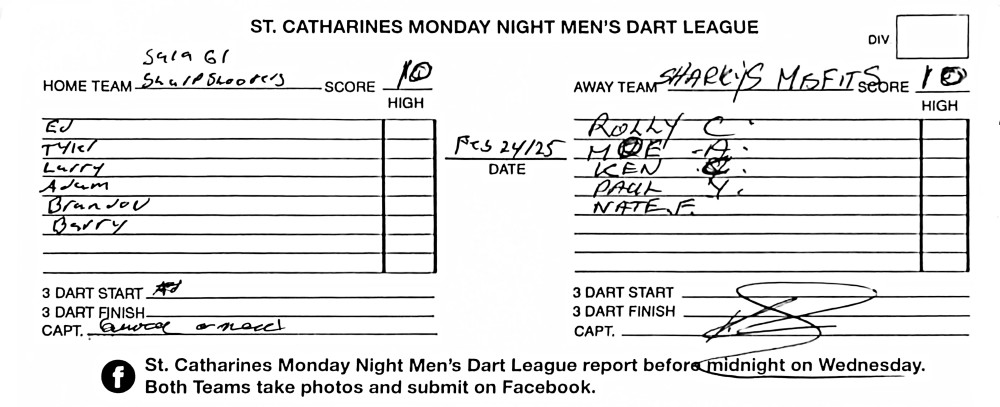 ST. CATHARINES MONDAY NIGHT MEN'S DART LEAGUE
DIV
Sala G1
HOME TEAM Sharpshooters SCORE 10
HIGH
AWAY TEAM SHARKY'S MISFITS SCORE 10
HIGH
Ed
Tyler
Larry
Adam
Brandon
Barry
Feb 24/25
DATE
ROLLY C
MOE A
KEN
PAUL Y.
NATE.F.
3 DART START
3 DART FINISH
CAPT.
3 DART START
3 DART FINISH
CAPT.
f
St. Catharines Monday Night Men's Dart League report before midnight on Wednesday.
Both Teams take photos and submit on Facebook.